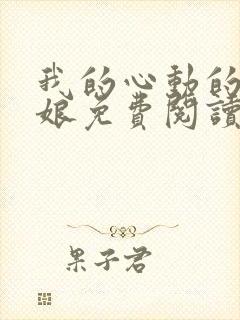 我的心動的
娘免費閱讀
果子君